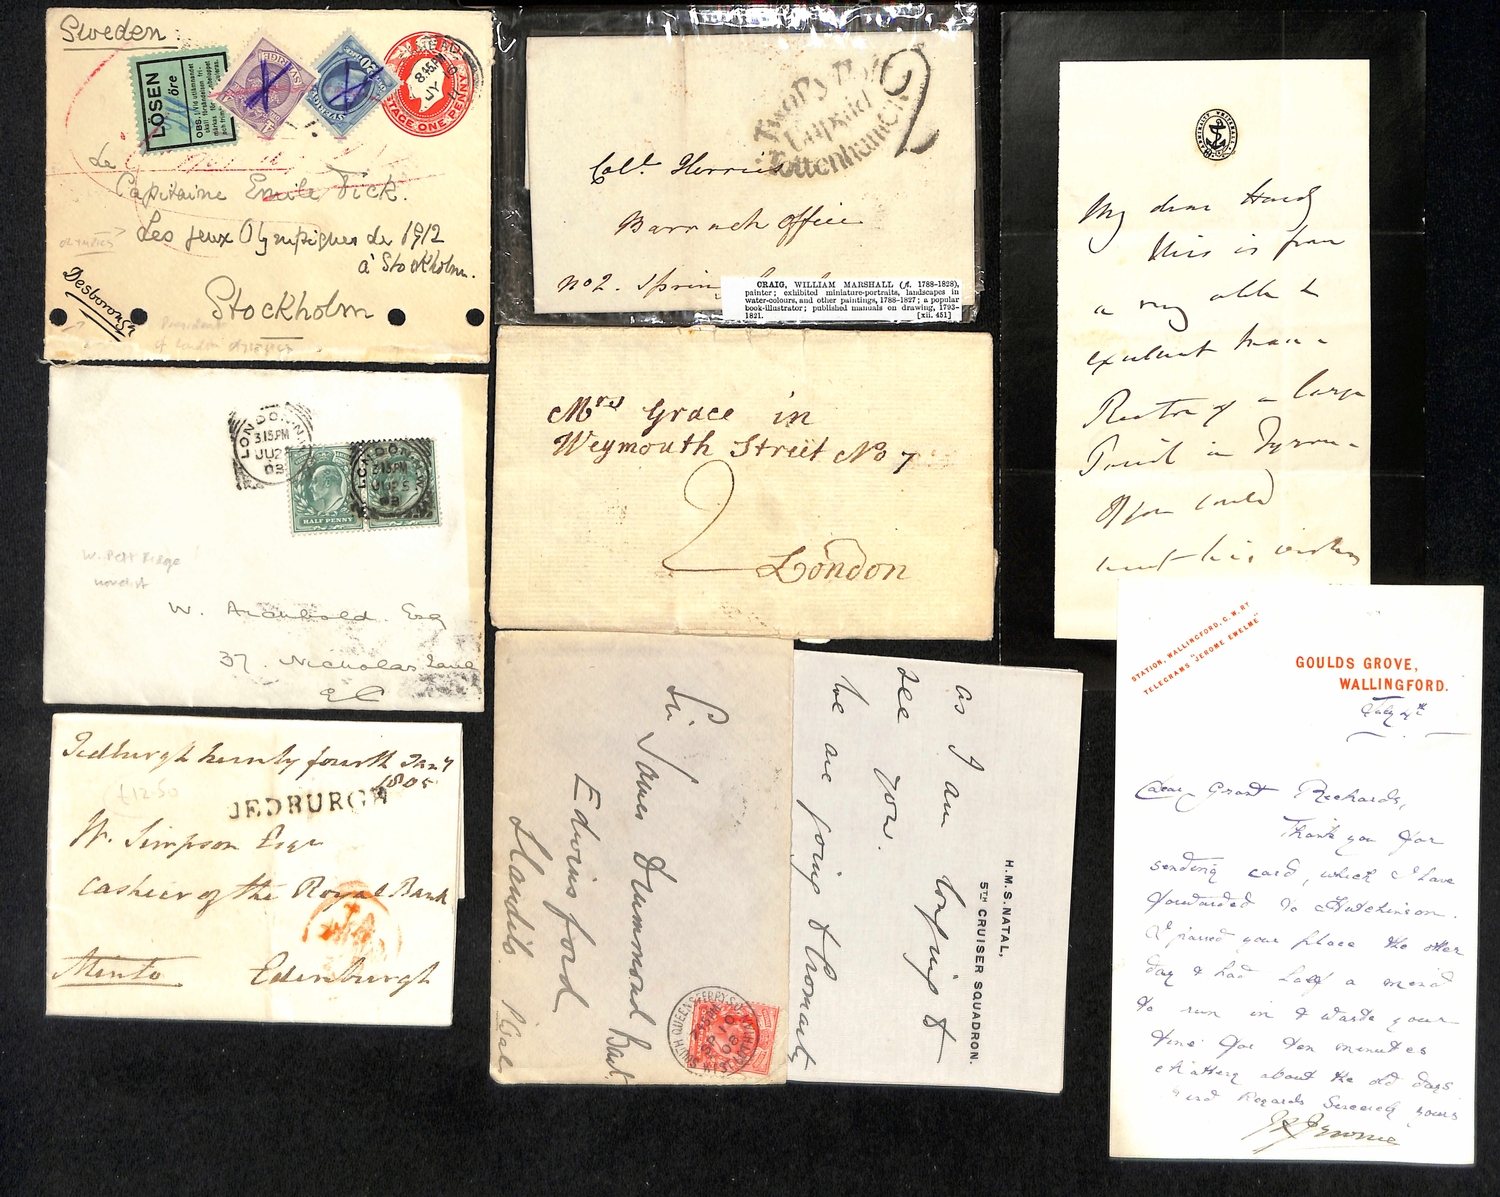 Sweden:
LÖSEN
öre
OBS.! Vid utlämnandet
SVERIGE
SVERIGE
8.45PM
JY
POSTAGE ONE PENNY
Le
Capitaine Emile Fick.
Les Jeux Olympiques de 1912
à Stockholm.
Stockholm
Desborough
OLYMPICS
President
of London Olympics
Two Py P
Unpaid
Tottenham
2
Coll. Herries
Barrack Office
No 2. Spring
CRAIG, WILLIAM MARSHALL (fl. 1788-1828),
painter; exhibited miniature-portraits, landscapes in
water-colours, and other paintings, 1788-1827; a popular
book-illustrator; published manuals on drawing, 1793-
1821. [xii. 451]
My dear Hardy
This is from
a very able &
excellent man
Rector of a large
If you could
LONDON. N.W
3.15PM
JU 25
08
LONDON. N.W
3.15PM
JU 25
08
HALF PENNY
W. Pett Ridge
novelist
W. Archibald Esq
37. Nicholas Lane
EC
Mrs Grace in
Weymouth Street No 7
2
London
STATION, WALLINGFORD, G.W.RY
TELEGRAMS "JEROME EWELME"
GOULDS GROVE,
WALLINGFORD.
July 4th
Dear Grant Richards,
Thank you for
sending card, which I have
forwarded to Hutchinson.
I passed your place the other
day & had half a mind
to run in & waste your
time for ten minutes
chatting about the old days
Kind Regards Sincerely yours
JK Jerome
Jedburgh twenty fourth Jany
1805
£12.50
JEDBURGH
W. Simpson Esqr
Cashier of the Royal Bank
Minto Edinburgh
Sir James Drummond Bart.
Edwinsford
Llandilo
SOUTH QUEENSFERRY
SP 10
08
H.M.S. NATAL,
5TH CRUISER SQUADRON.
as I am longing to
see you.
We are going to Cromarty